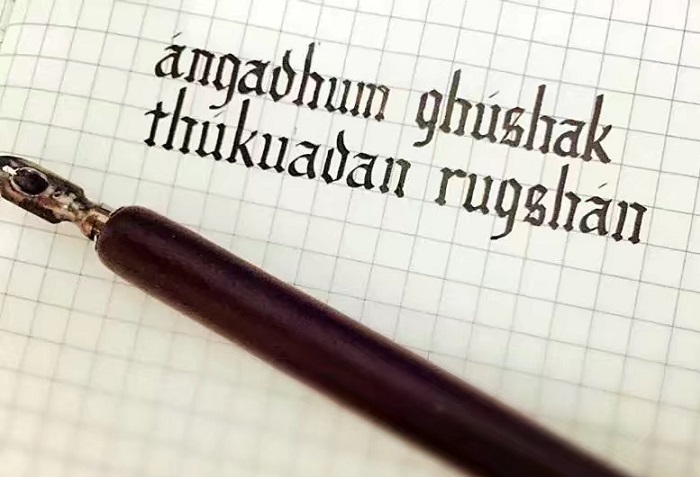 ángadhum ghúshak
thúkuadan rugshán